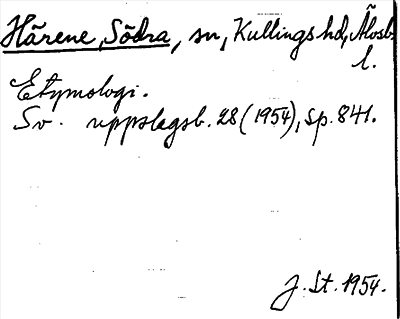 Härene, Södra, sn, Kullings hd, Älvsb.
l.
Etymologi.
Sv. uppslagsb. 28 (1954), sp. 841.
J. St. 1954.